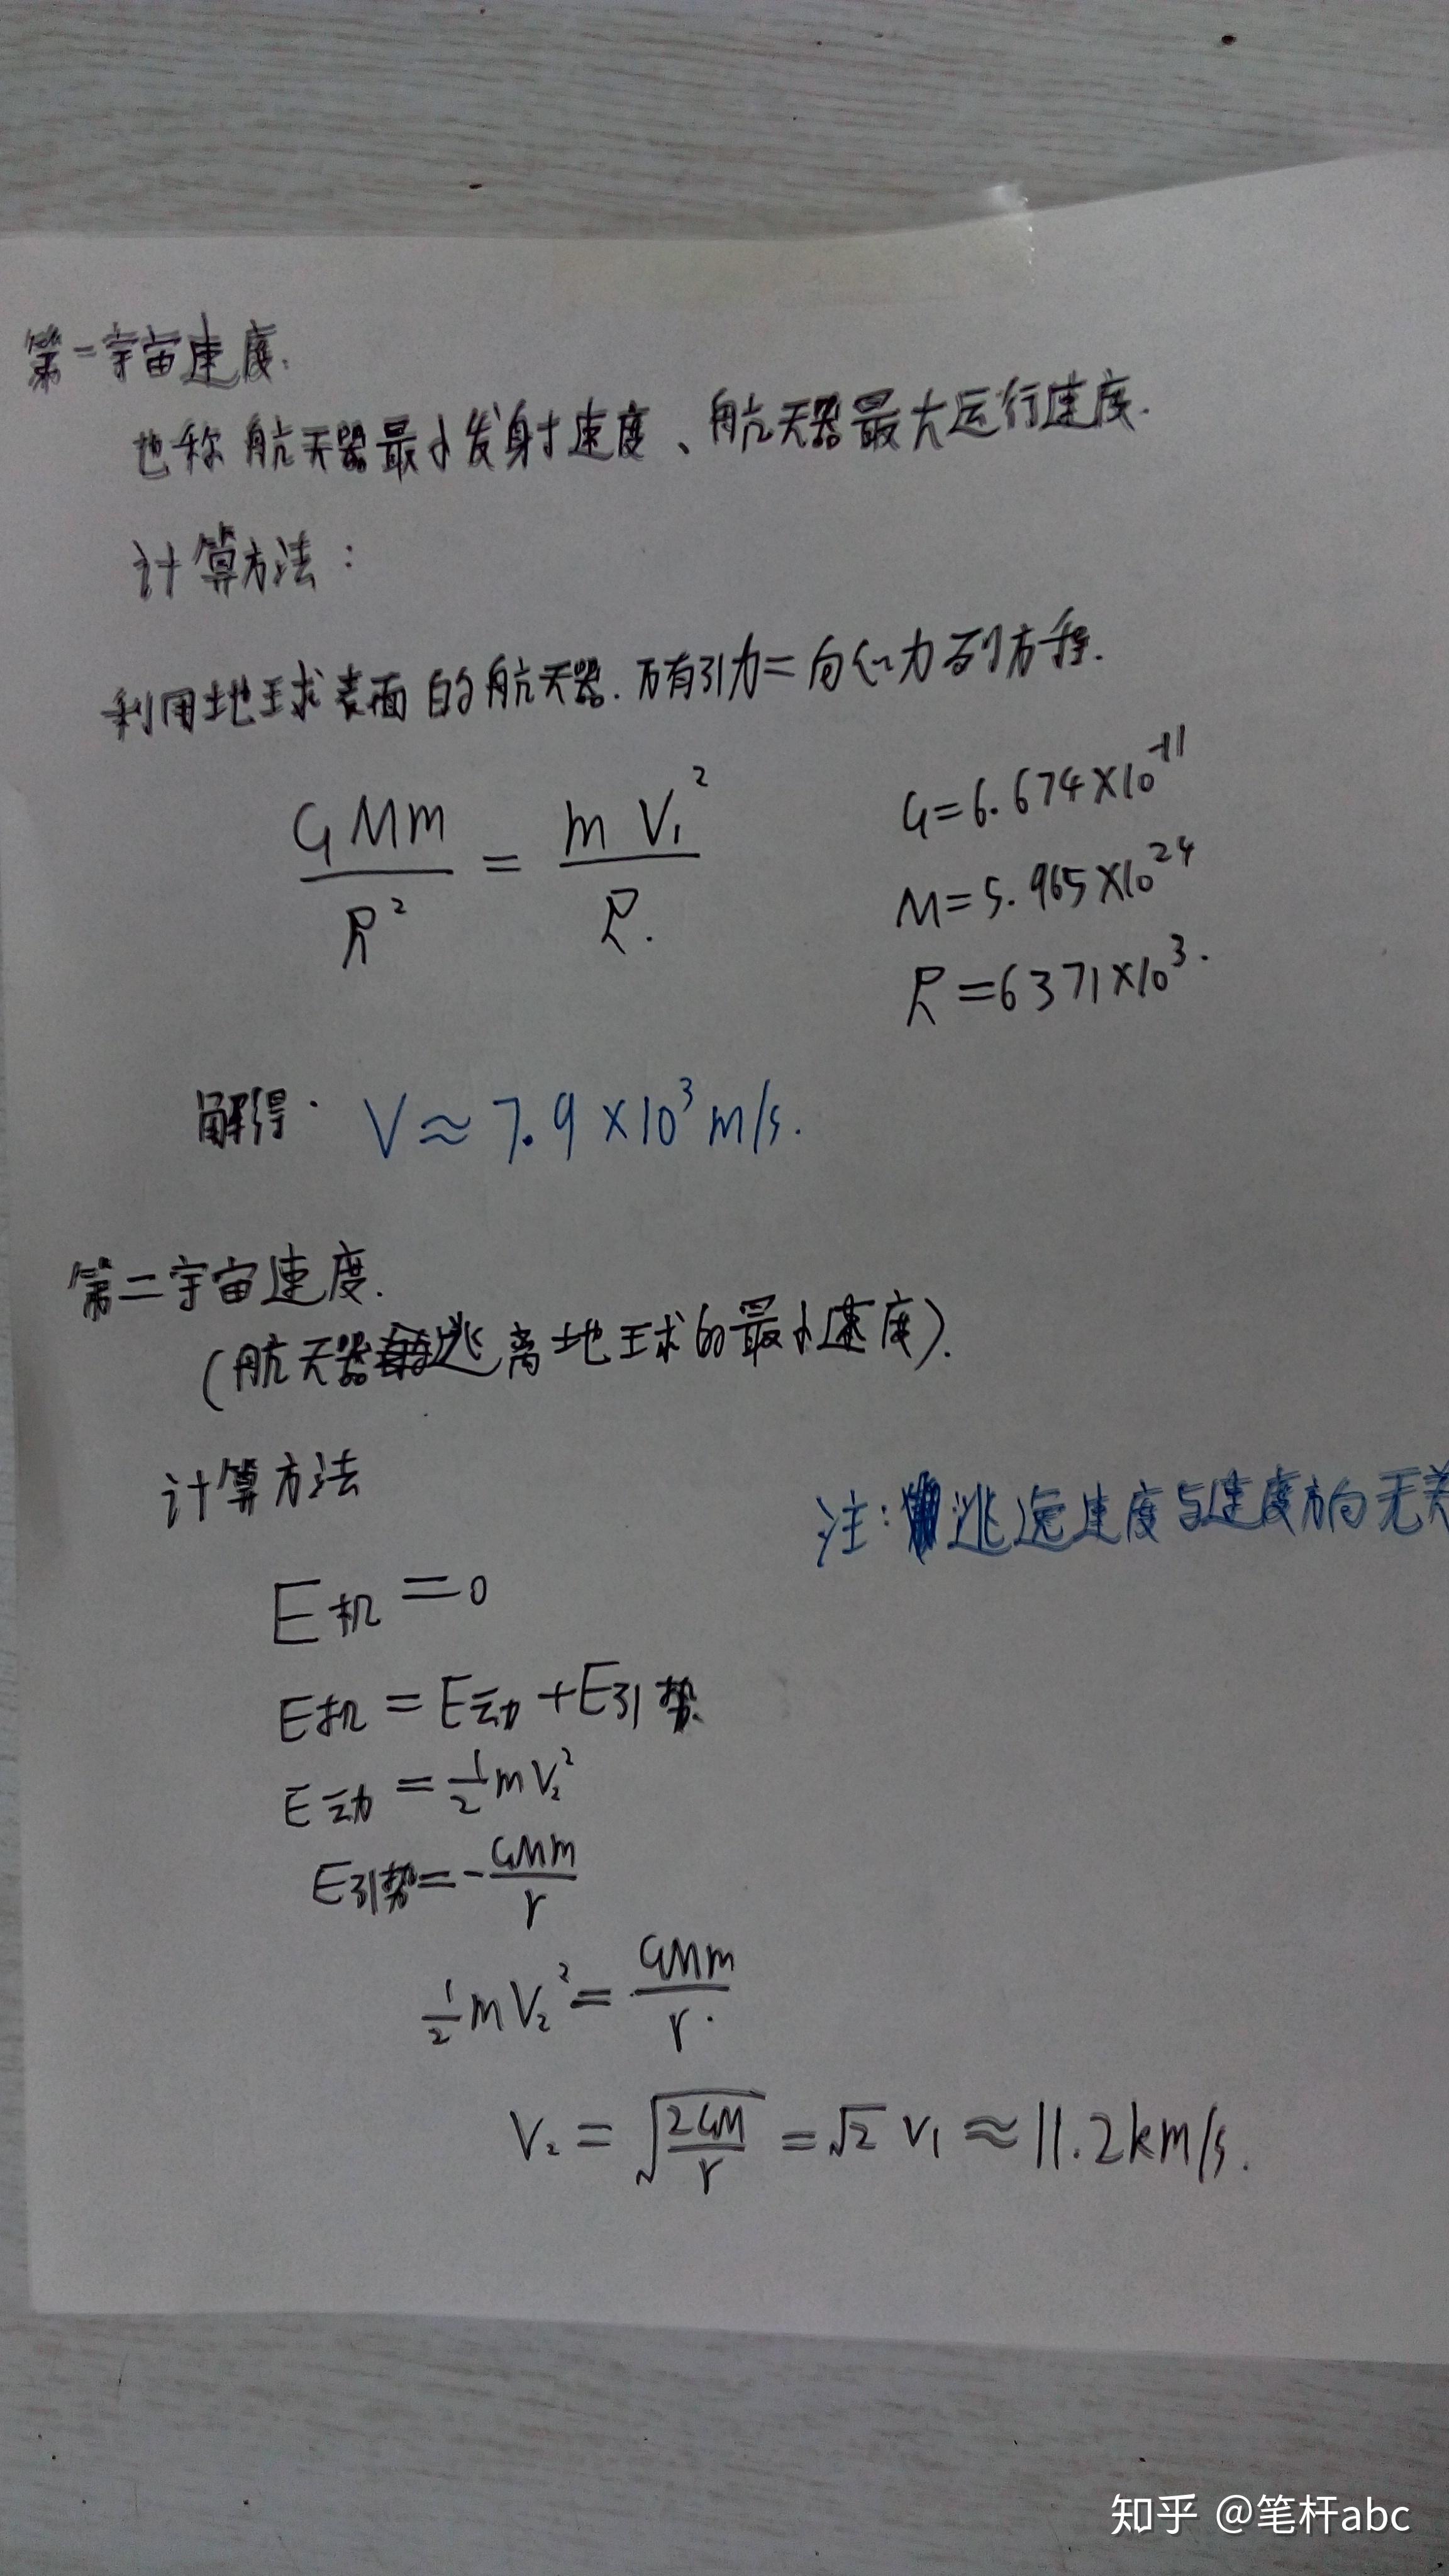 第一宇宙速度.
也称航天器最小发射速度、航天器最大运行速度.
计算方法:
利用地球表面的航天器.万有引力=向心力列方程.
GMm/R² = mV₁²/R.
G=6.674×10⁻¹¹
M=5.965×10²⁴
R=6371×10³.
解得. V≈7.9×10³m/s.
第二宇宙速度.
(航天器逃离地球的最小速度).
计算方法
注:逃逸速度与速度方向无关
E机=0
E机=E动+E引势.
E动=½mV₂²
E引势=-GMm/r
½mV₂²=GMm/r.
V₂=√(2GM/r)=√2 V₁≈11.2km/s.
知乎 @笔杆abc